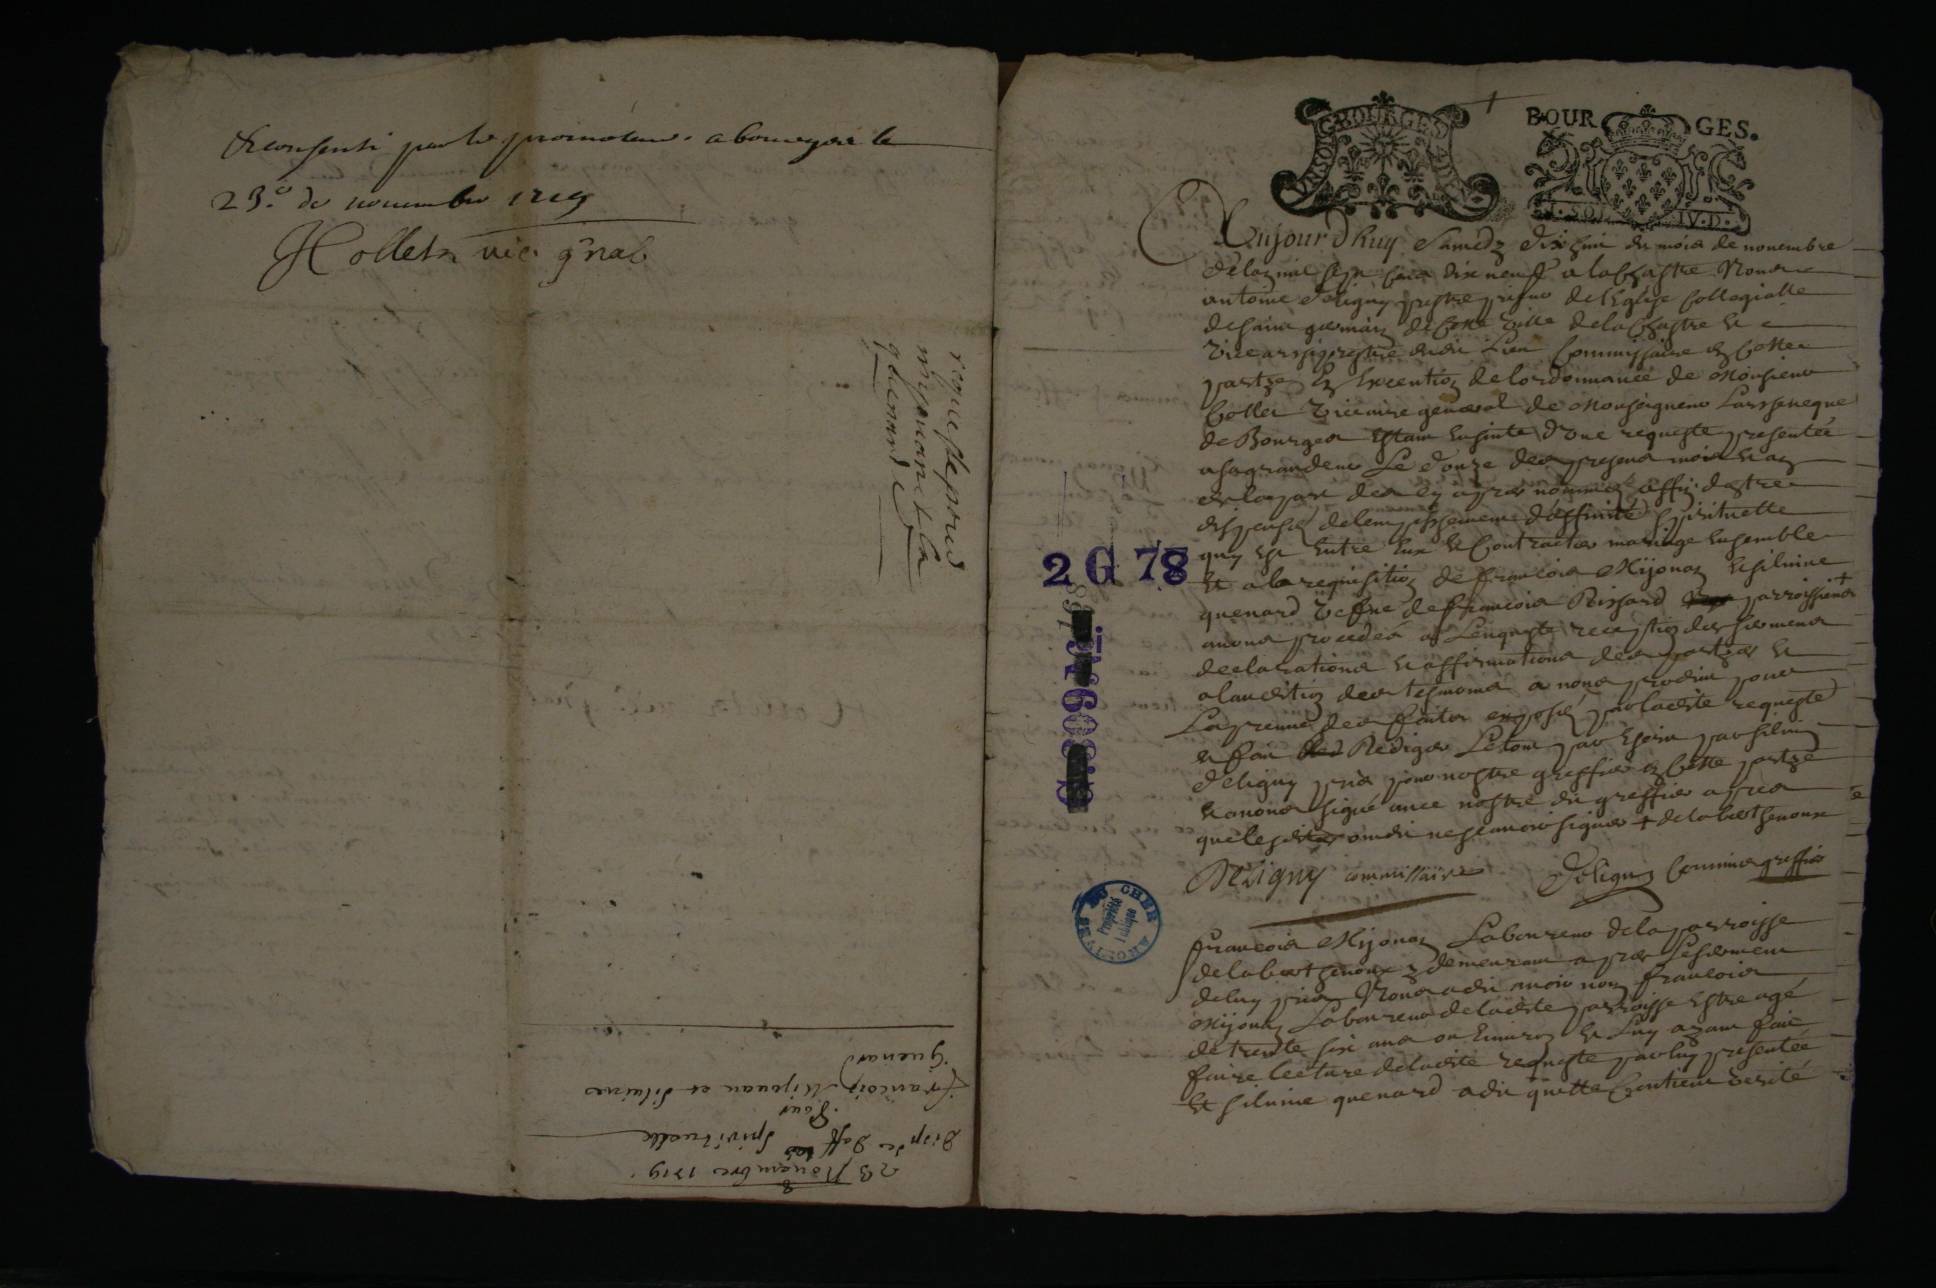 & consenti par le promoteur. a bourges le
23.e de nouembre 1719
Hollets vic. gnal
requeste pour
mijouan et la
quenarde
23 Nouembre 1719.
Disp.ce Daff Spirituelle
Pour
François Mijouan et Siluine
Guenard
GBOURGES
BOUR GES.
IV.D.
Aujourdhuy Samedy dixhuit du mois de nouembre
de lan mil sept cens dix neuf a la Chastre Nous
antoine deligny prestre prieur de l'Eglise Collegialle
de saint germain de Cette Ville de la Chastre et
Vice archiprestre dudit Lieu Commissaire en Cette
partye En Execution de lordonnance de Monsieur
Collet Vicaire general de Monseigneur Larcheueque
de Bourges Estant Ensuitte d'vne requeste presentée
a sa grandeur Le douze des presens mois et an
de la part des Cy apres nommez affin destre
dispensez de lempeschement daffinité spirituelle
quy Est Entre Eux et Contracter mariage Ensemble
Et a la requisition de francois Mijonan et siluine
quenard Vefue de francois Rissard parroissiens +
auons procedés a Lenqueste reception des sermens
declarations et affirmations des partyes et
a laudition des tesmoins a nous produit pour
La preuue des faitz exposez par ladite requeste
et fait Rediger Le tout par Escrit par siluin
deligny pris pour nostre greffier en Cette partye
et auons signé auec nostre dit greffier apres
que lesdites ont dit ne scauoir signer + de la berthenoux
Deligny commissaire Deligny Commis greffier
francois Mijonan Laboureur de la parroisse
de la berthenoux y demeurant apres Le serment
de luy pris Nous a dit auoir nom francois
Mijonan Laboureur de ladite parroisse Estre agé
de trente six ans ou Enuiron et Luy ayant fait
faire lecture de ladite requeste par luy presentée
Et siluine quenard a dit quelle Contient Verité
2 G 78
DU CHER
Propriété
Publique
ARCHIVES